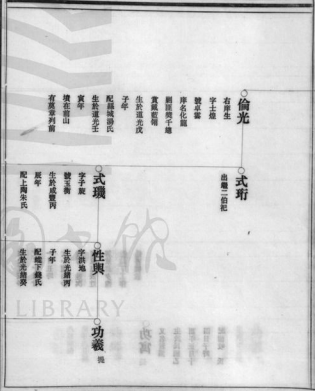 倫光
右岸生
字士煌
號卓雲
庠名化龍
嗣匪獎千總
賞戴藍翎
生於道光戊
子年
配縣城湯氏
生於道光壬
寅年
墳在前山
有莫章列前
式珩
出繼二伯祀
式璣
字子旋
號玉衡
生於咸豐丙
辰年
配上陶朱氏
性與
字洪地
生於光緒丙
子年
配橋下錢氏
生於光緒癸
功義
LIBRARY